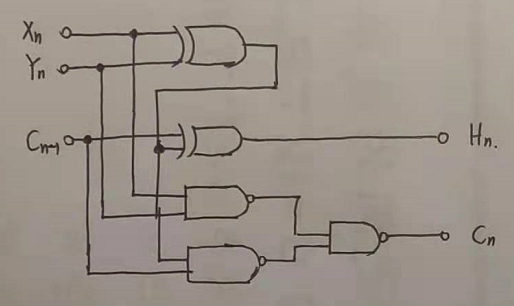 Xn
Yn
Cn-1
Hn.
Cn